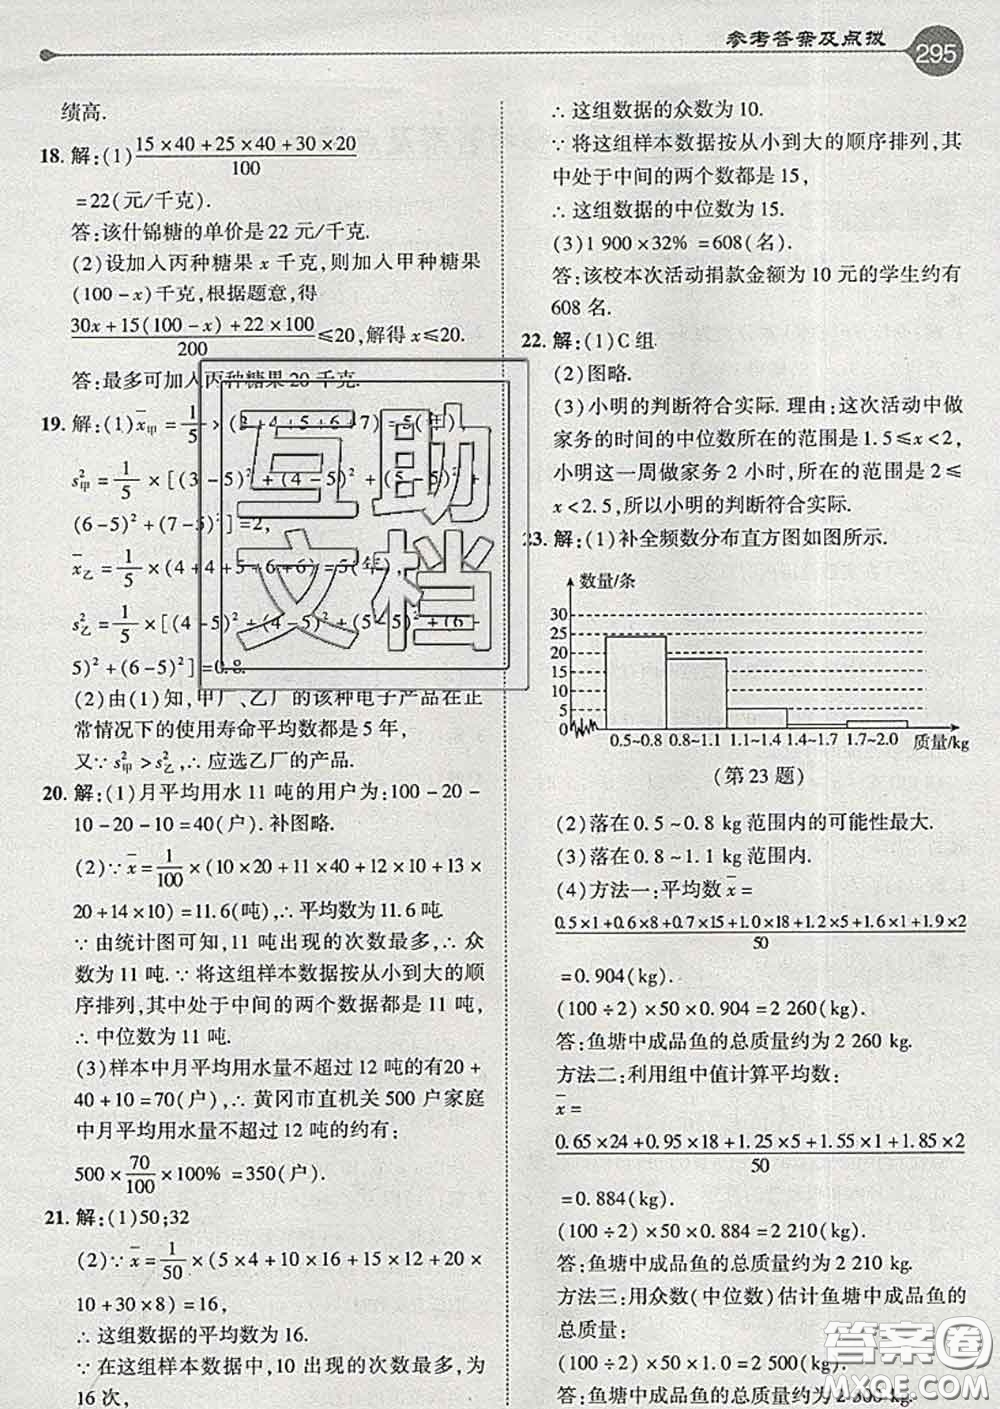 参考答案及点拨
295
绩高.
18. 解:(1)(15×40+25×40+30×20)/100
=22(元/千克).
答:该什锦糖的单价是 22 元/千克.
(2)设加入丙种糖果 x 千克,则加入甲种糖果
(100-x)千克,根据题意,得
(30x+15(100-x)+22×100)/200 ≤20,解得 x≤20.
答:最多可加入丙种糖果 20 千克.
19. 解:(1)x̄甲=1/5×(3+4+5+6+7)=5(年),
s²甲=1/5×[(3-5)²+(4-5)²+(5-5)²+
(6-5)²+(7-5)²]=2,
x̄乙=1/5×(4+4+5+6+6)=5(年),
s²乙=1/5×[(4-5)²+(4-5)²+(5-5)²+(6-
5)²+(6-5)²]=0.8.
(2)由(1)知,甲厂、乙厂的该种电子产品在正
常情况下的使用寿命平均数都是 5 年,
又∵s²甲>s²乙,∴应选乙厂的产品.
20. 解:(1)月平均用水 11 吨的用户为:100-20-
10-20-10=40(户). 补图略.
(2)∵x̄=1/100×(10×20+11×40+12×10+13×
20+14×10)=11.6(吨),∴平均数为 11.6 吨.
∵由统计图可知,11 吨出现的次数最多,∴众
数为 11 吨.∵将这组样本数据按从小到大的顺
序排列,其中处于中间的两个数据都是 11 吨,
∴中位数为 11 吨.
(3)样本中月平均用水量不超过 12 吨的有20
+40+10=70(户),∴黄冈市直机关 500 户家庭
中月平均用水量不超过 12 吨的约有:
500×70/100×100%=350(户).
21. 解:(1)50;32
(2)∵x̄=1/50×(5×4+10×16+15×12+20×
10+30×8)=16,
∴这组数据的平均数为 16.
∵在这组样本数据中,10 出现的次数最多,为
16 次,
∴这组数据的众数为 10.
∵将这组样本数据按从小到大的顺序排列,其
中处于中间的两个数都是 15,
∴这组数据的中位数为 15.
(3)1 900×32%=608(名).
答:该校本次活动捐款金额为 10 元的学生约有
608 名.
22. 解:(1)C 组.
(2)图略.
(3)小明的判断符合实际. 理由:这次活动中做
家务的时间的中位数所在的范围是 1.5≤x<2,
小明这一周做家务 2 小时,所在的范围是 2≤
x<2.5,所以小明的判断符合实际.
23. 解:(1)补全频数分布直方图如图所示.
数量/条
30
25
20
15
10
5
0
0.5~0.8 0.8~1.1 1.1~1.4 1.4~1.7 1.7~2.0 质量/kg
(第 23 题)
(2)落在 0.5~0.8 kg 范围内的可能性最大.
(3)落在 0.8~1.1 kg 范围内.
(4)方法一:平均数 x̄=
(0.5×1+0.6×8+0.7×15+1.0×18+1.2×5+1.6×1+1.9×2)/50
=0.904(kg).
(100÷2)×50×0.904=2 260(kg).
答:鱼塘中成品鱼的总质量约为 2 260 kg.
方法二:利用组中值计算平均数:
x̄=
(0.65×24+0.95×18+1.25×5+1.55×1+1.85×2)/50
=0.884(kg).
(100÷2)×50×0.884=2 210(kg).
答:鱼塘中成品鱼的总质量约为 2 210 kg.
方法三:用众数(中位数)估计鱼塘中成品鱼的
总质量:
(100÷2)×50×1.0=2 500(kg).
答:鱼塘中成品鱼的总质量约为 2 500 kg.
互助
文档
答案圈
MXQE.COM